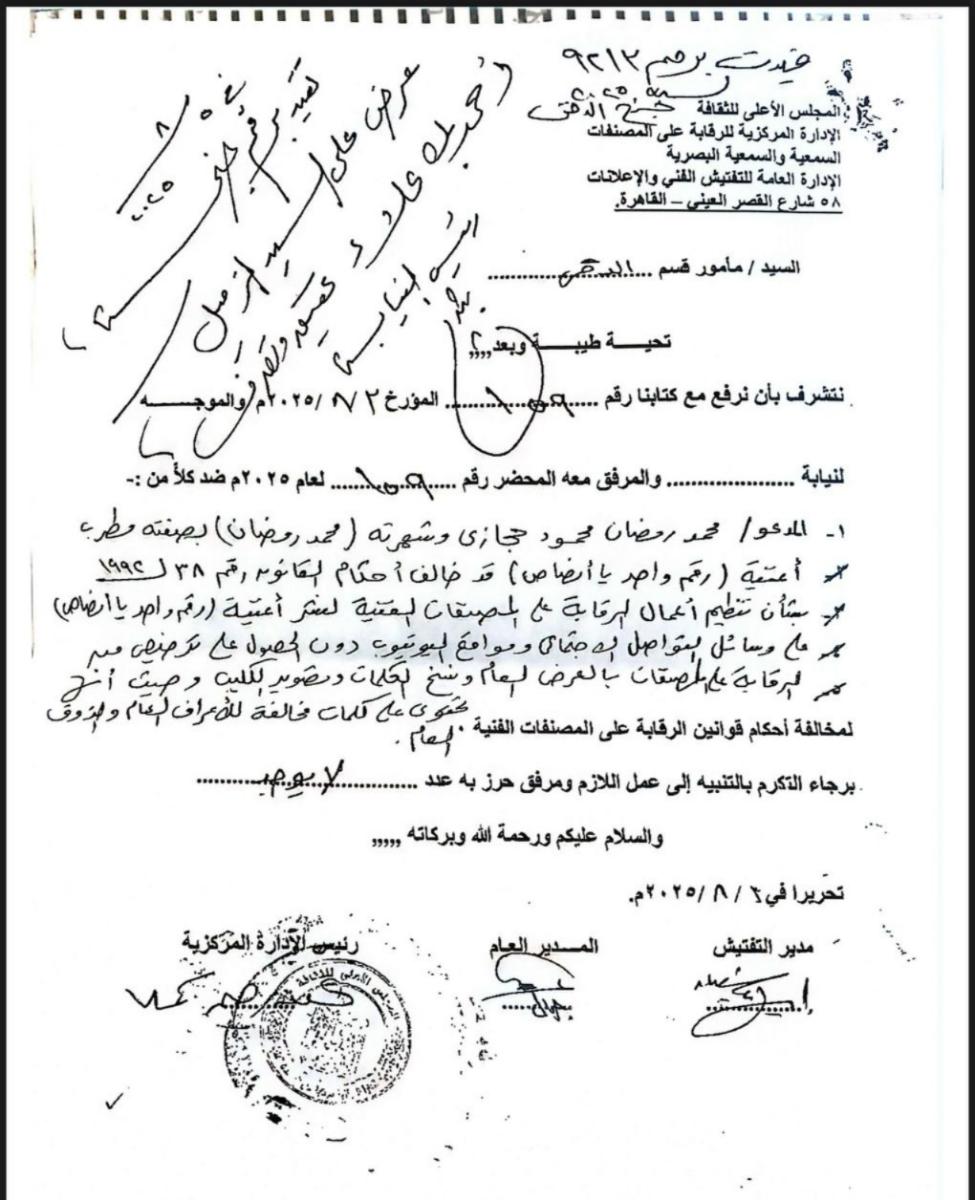 قيدت برقم ٩٢١٣
لسنة ٢٠٢٥
جنح الدقى
المجلس الأعلى للثقافة
الإدارة المركزية للرقابة على المصنفات
السمعية والسمعية البصرية
الإدارة العامة للتفتيش الفني والإعلانات
٥٨ شارع القصر العيني – القاهرة.
تقيد برقم جنح
٢٠٢٥ ٨ ٥
عرض على السيد الزميل
رئيس النيابة
السيد / مأمور قسم ... الدقى ...
تحيـــة طيبـــة وبعد,,,,
نتشرف بأن نرفع مع كتابنا رقم ... ١٥٩ ... المؤرخ ٢ / ٨ /٢٠٢٥م والموجـــــه
لنيابة .................... والمرفق معه المحضر رقم ... ١٥٩ ... لعام ٢٠٢٥م ضد كلاً من :-
١- المدعو / محمد رمضان محمود حجازى وشهرته (محمد رمضان) بصفته مطرب
أغنية (رقم واحد يا أنصاص) قد خالف أحكام القانون رقم ٣٨ لـ ١٩٩٢
بشأن تنظيم أعمال الرقابة على المصنفات الفنية لنشر أغنية (رقم واحد يا أنصاص)
على وسائل التواصل الاجتماعى ومواقع اليوتيوب دون الحصول على ترخيص من
الرقابة على المصنفات بالعرض العام ونسخ الكلمات وتصوير الكليب وحيث أنها
تحتوى على كلمات مخالفة للأعراف العام والذوق
العام.
لمخالفة أحكام قوانين الرقابة على المصنفات الفنية .
برجاء التكرم بالتنبيه إلى عمل اللازم ومرفق حرز به عدد ... لا يوجد ...
والسلام عليكم ورحمة الله وبركاته ,,,,,
تحريرا في ٢ / ٨ / ٢٠٢٥م.
مدير التفتيش
المـــدير العام
رئيس الإدارة المركزية
المجلس الأعلى للثقافة